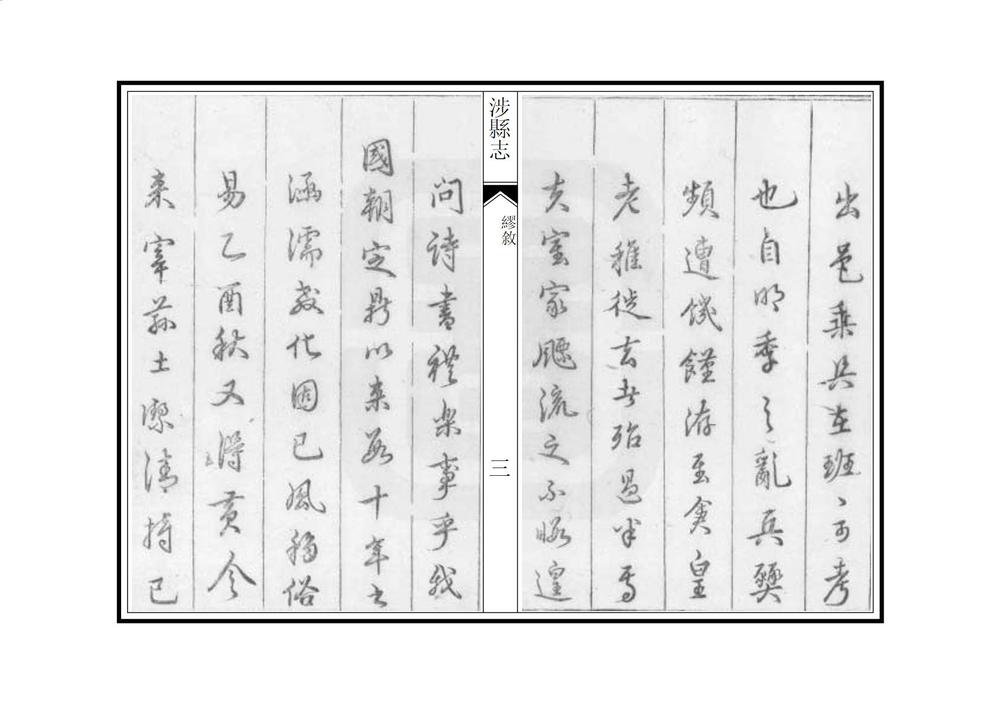 出邑乘具在班〻可考
也自明季之亂兵燹
頻遭饑饉洊至皇
老稚徙去者殆過半焉
夫室家飄流之不暇遑
涉縣志
繆敘
三
問詩書禮樂事乎我
國朝定鼎以来數十年之
涵濡教化固已風移俗
易乙酉秋又得黃令
来宰茲土潔清持己